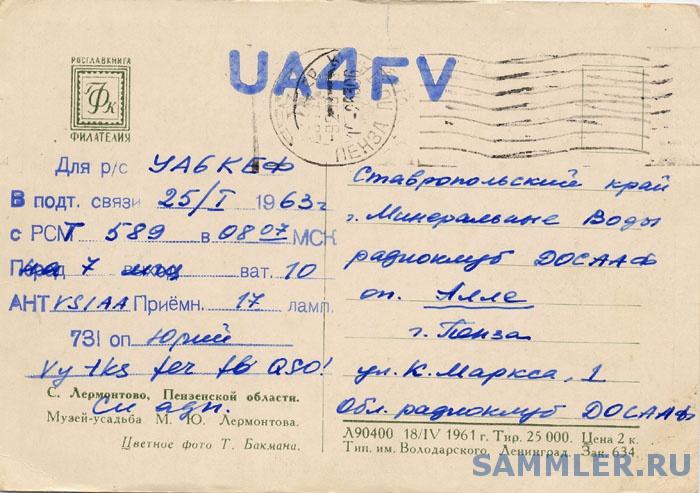 UA4FV
РОСГЛАВКНИГА
Фк
ФИЛАТЕЛИЯ
ПЕНЗА
Для р/с УА6КЕФ
В подт. связи 25/I 1963 г
с РСТ 589 в 0807 МСК
7 ват. 10
АНТ VS1AA Приёмн. 17 ламп.
731 оп Юрий
Vy tks fer fb QSO!
С. Лермонтово, Пензенской области.
См адр.
Музей-усадьба М. Ю. Лермонтова.
Цветное фото Т. Бакмана.
Ставропольский край
г. Минеральные Воды
радиоклуб ДОСААФ
оп. Алле
г. Пенза
ул. К. Маркса, 1
Обл. радиоклуб ДОСААФ
Л90400 18/IV 1961 г. Тир. 25 000. Цена 2 к.
Тип. им. Володарского, Ленинград. Зак. 634
SAMMLER.RU